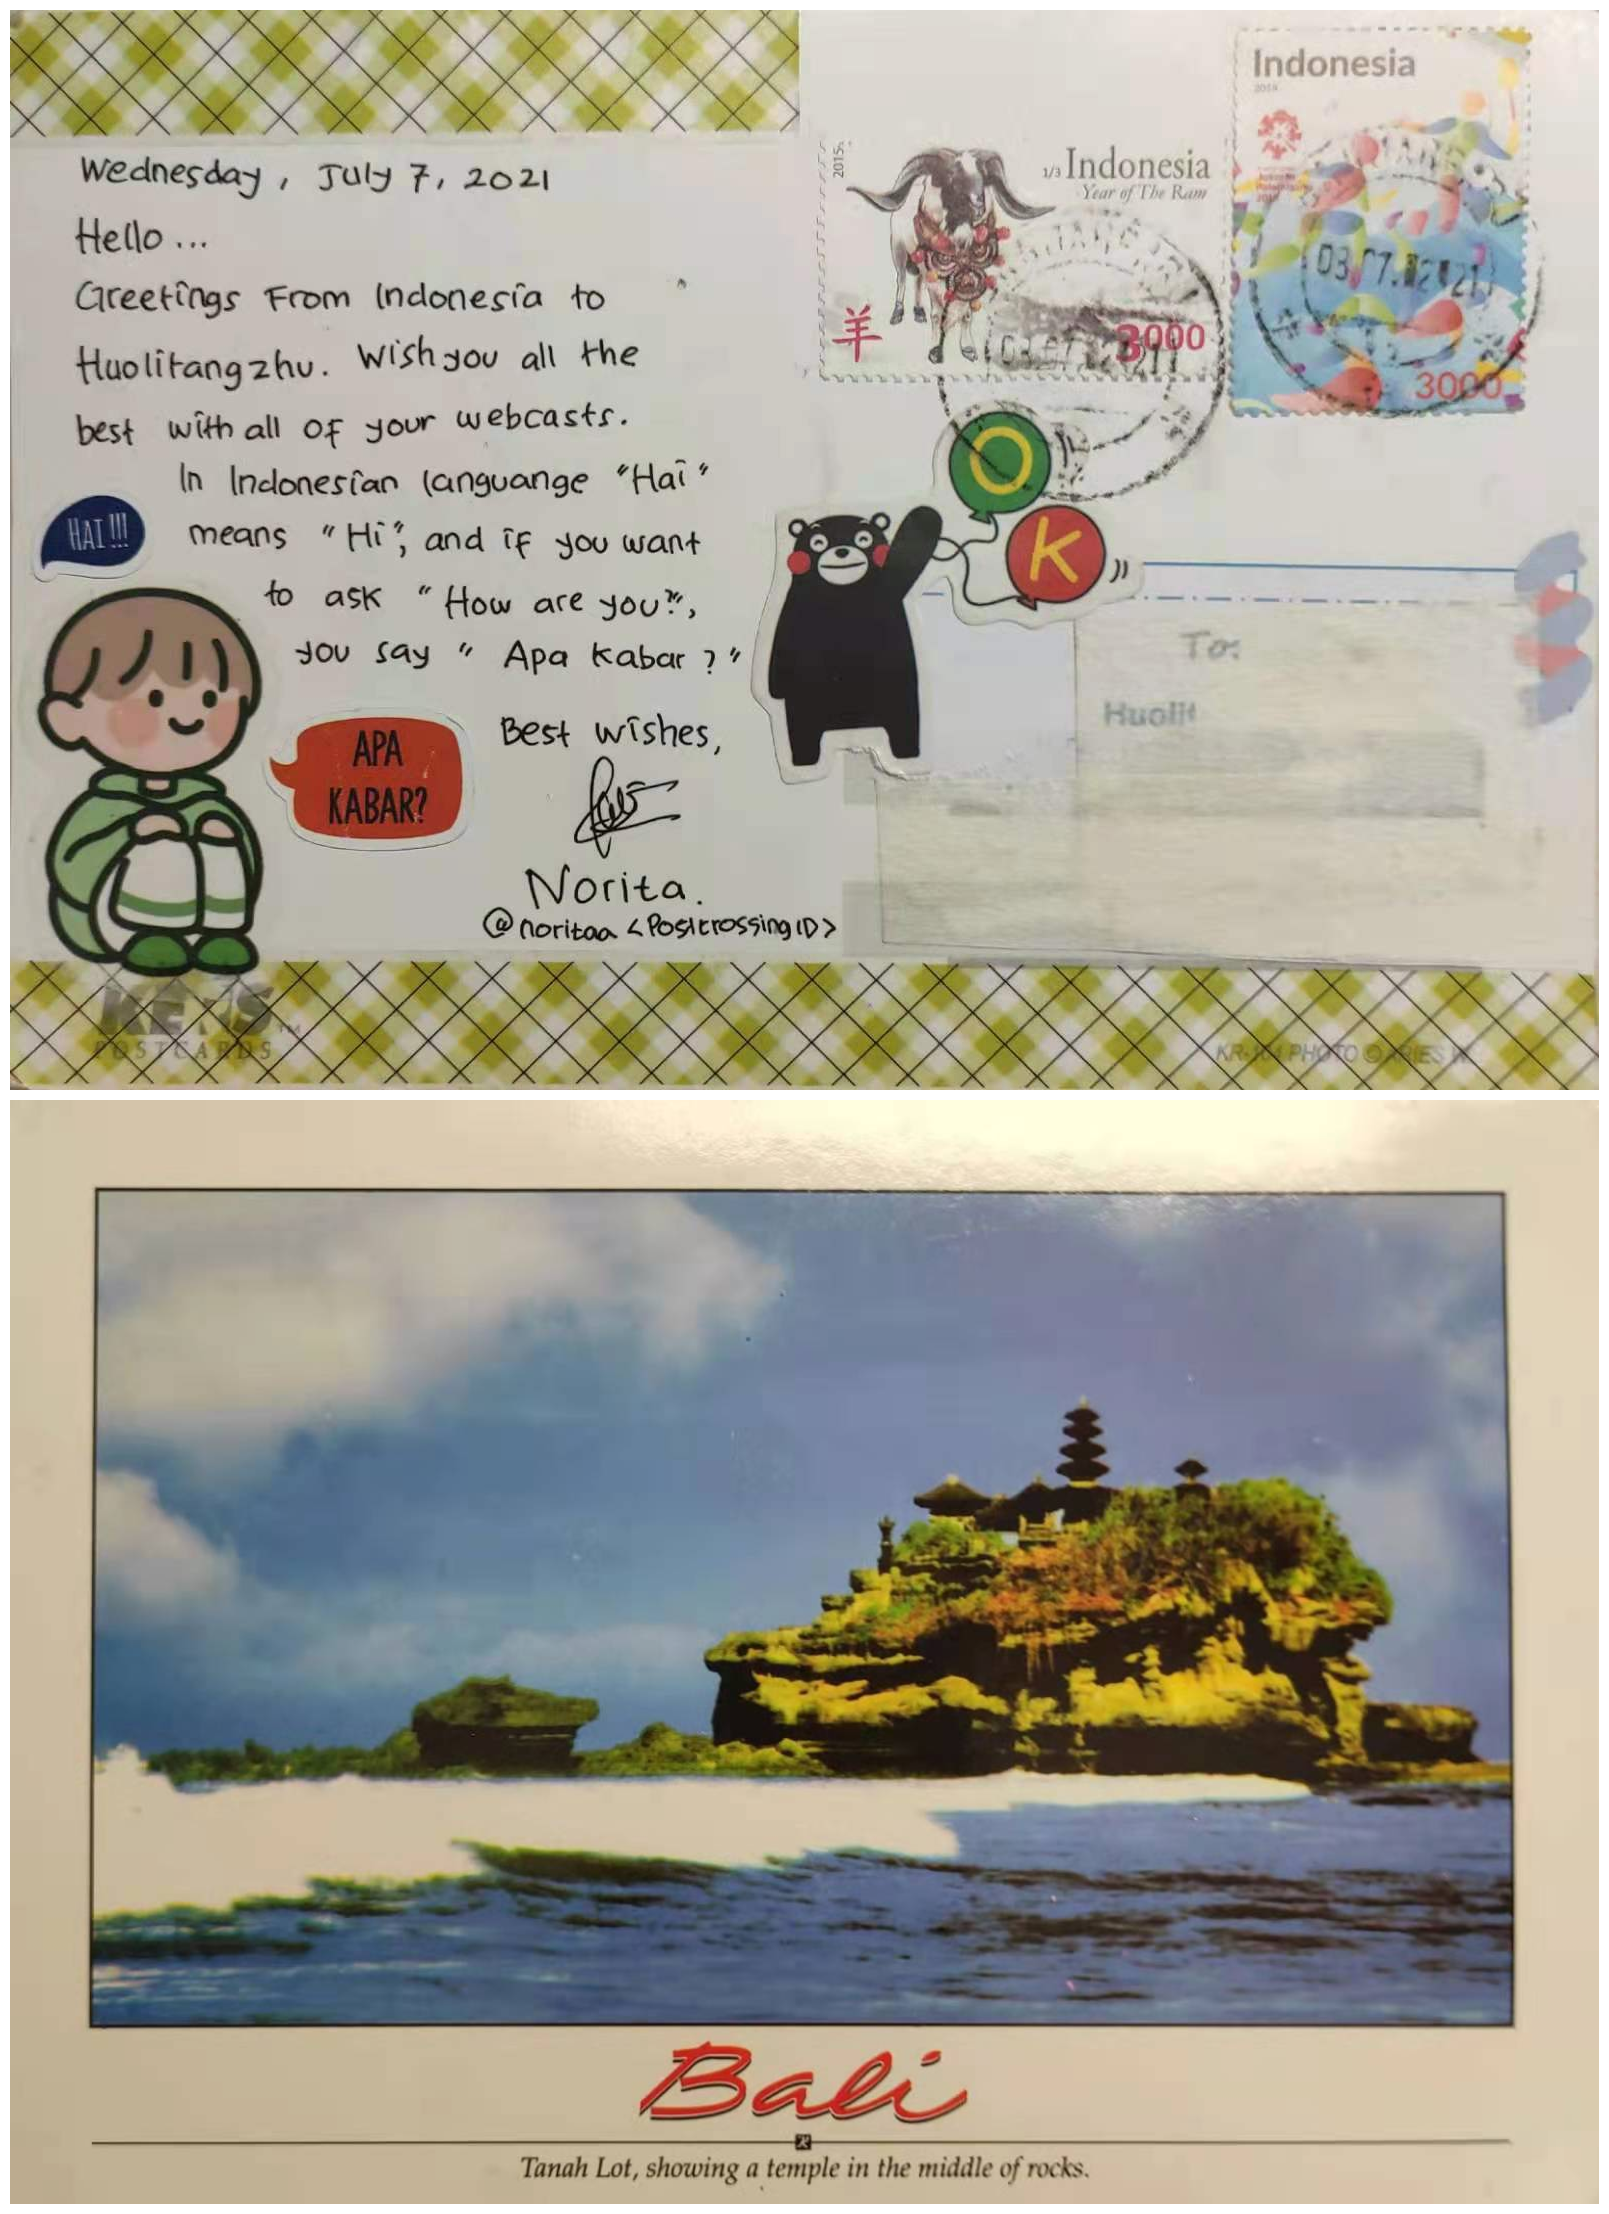 Wednesday, July 7, 2021
Hello...
Greetings From Indonesia to
Huolitangzhu. Wish you all the
best with all of your webcasts.
In Indonesian languange "Hai"
means "Hi", and if you want
to ask "How are you?",
you say "Apa kabar?"
HAI!!!
APA
KABAR?
Best wishes,
Norita.
@noritaa <Postcrossing ID>
2015
1/3 Indonesia
Year of The Ram
羊
3000
Indonesia
2018
03.07.2021
3000
OK
To:
Huolit
POSTCARDS
PHOTO © ARIES W.
Bali
Tanah Lot, showing a temple in the middle of rocks.